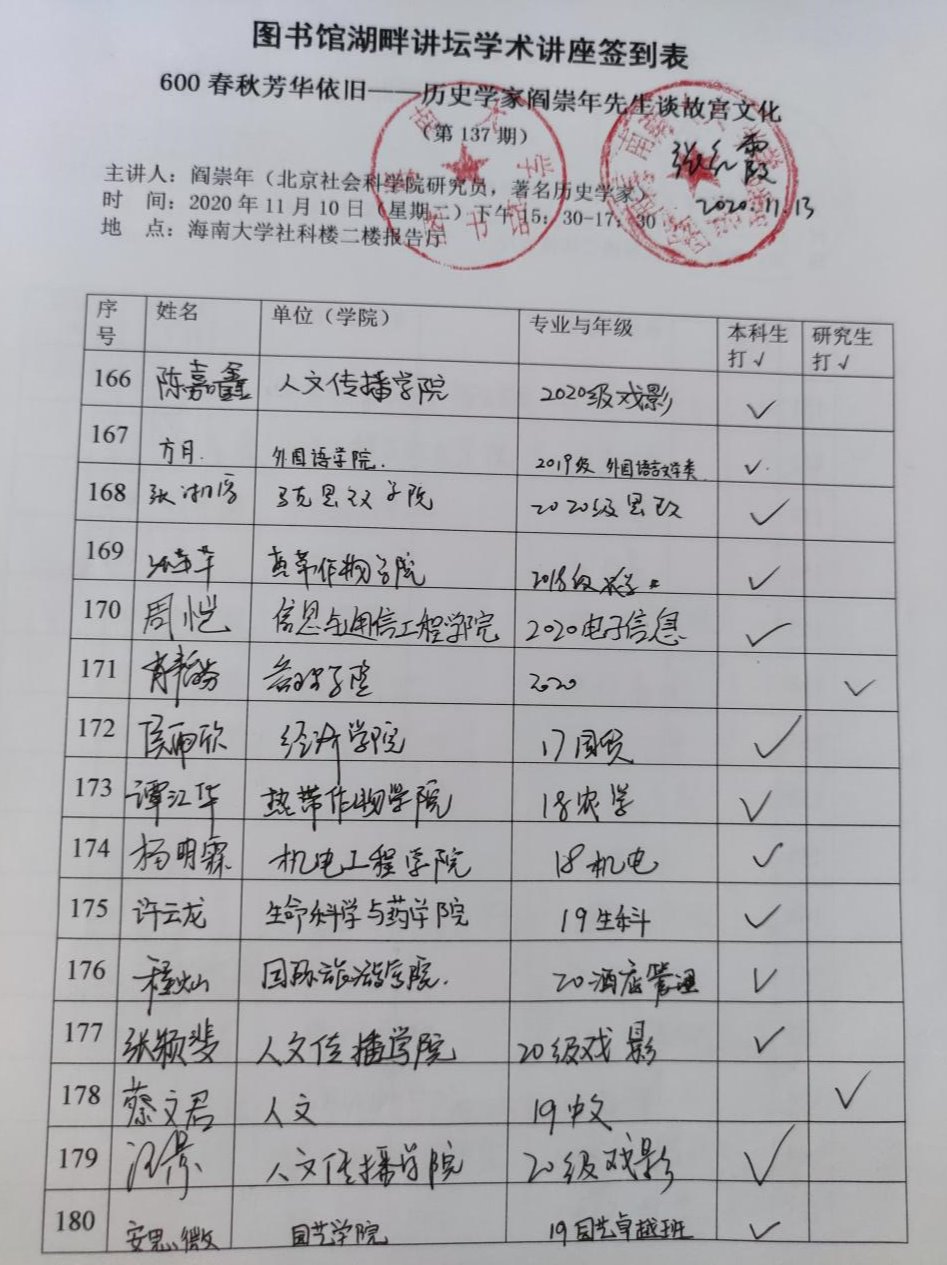 图书馆湖畔讲坛学术讲座签到表
600春秋芳华依旧——历史学家阎崇年先生谈故宫文化
（第137期）
主讲人：阎崇年（北京社会科学院研究员，著名历史学家）
时 间：2020年11月10日（星期二）下午15：30-17：30
2020.11.13
地 点：海南大学社科楼二楼报告厅
序号 姓名 单位（学院） 专业与年级 本科生打√ 研究生打√
166 陈嘉鑫 人文传播学院 2020级戏影 ✓
167 方月. 外国语学院. 2019级 外国语言文学类 ✓
168 马克思主义学院 2020级思政 ✓
169 热带作物学院 2018级农学 ✓
170 周恺 信息与通信工程学院 2020电子信息 ✓
171 2020 ✓
172 侯雨欣 经济学院 17国贸 ✓
173 谭江华 热带作物学院 18农学 ✓
174 杨明霖 机电工程学院 18机电 ✓
175 许云龙 生命科学与药学院 19生科 ✓
176 程灿 国际旅游学院. 20酒店管理 ✓
177 张颖斐 人文传播学院 20级戏影 ✓
178 蔡文君 人文 19中文 ✓
179 人文传播学院 20级戏影 ✓
180 安思微 园艺学院 19园艺卓越班 ✓